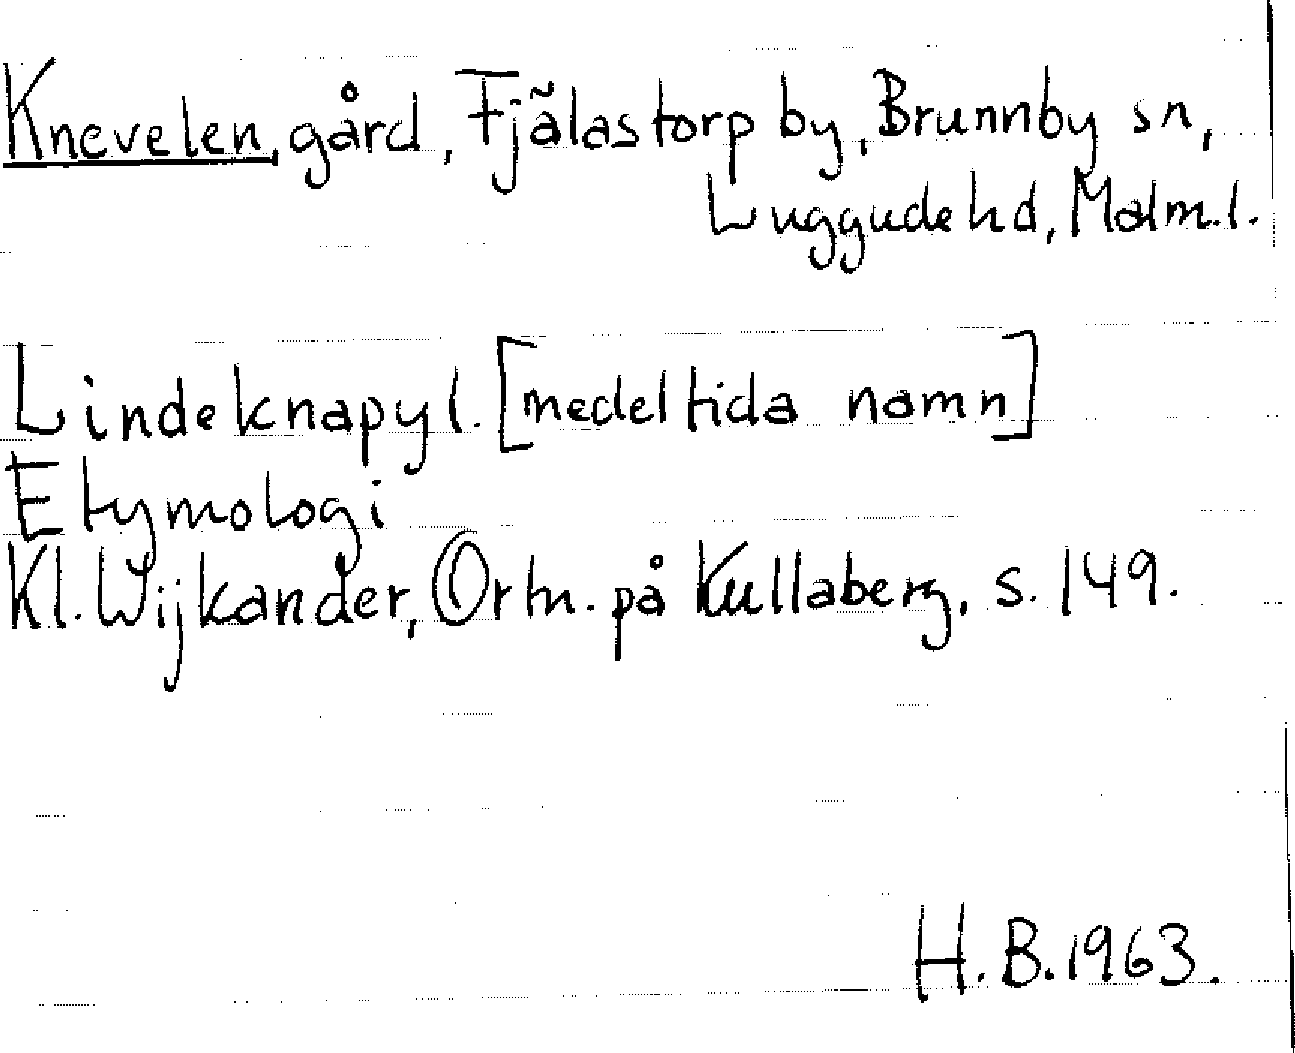 Knevelen, gård, Fjälastorp by, Brunnby sn,
Luggude hd, Malm. l.
Lindeknapyl. [medeltida namn]
Etymologi
Kl. Wijkander, Ortn. på Kullaberg, s. 149.
H. B. 1963.